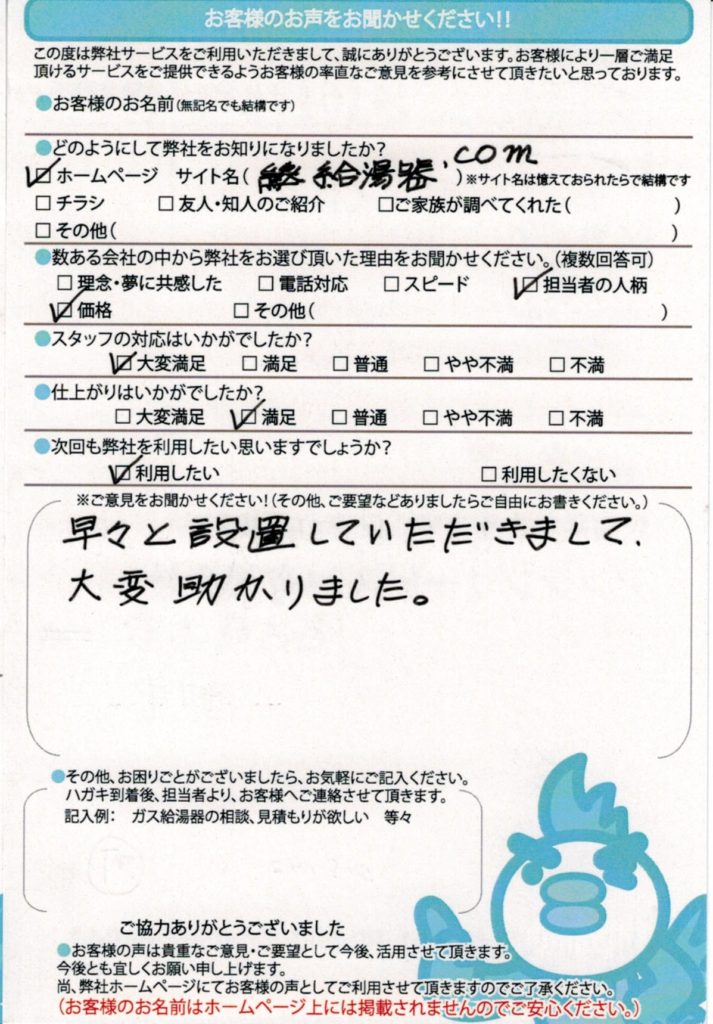 お客様のお声をお聞かせください!!
この度は弊社サービスをご利用いただきまして、誠にありがとうございます。お客様により一層ご満足
頂けるサービスをご提供できるようお客様の率直なご意見を参考にさせて頂きたいと思っております。
●お客様のお名前(無記名でも結構です)
●どのようにして弊社をお知りになりましたか?
☑ホームページ サイト名( 給湯器.com )※サイト名は憶えておられたらで結構です
□チラシ □友人・知人のご紹介 □ご家族が調べてくれた( )
□その他( )
●数ある会社の中から弊社をお選び頂いた理由をお聞かせください。(複数回答可)
□理念・夢に共感した □電話対応 □スピード ☑担当者の人柄
☑価格 □その他( )
●スタッフの対応はいかがでしたか?
☑大変満足 □満足 □普通 □やや不満 □不満
●仕上がりはいかがでしたか?
□大変満足 ☑満足 □普通 □やや不満 □不満
●次回も弊社を利用したい思いますでしょうか?
☑利用したい □利用したくない
※ご意見をお聞かせください!(その他、ご要望などありましたらご自由にお書きください。)
早々と設置していただきまして、
大変助かりました。
●その他、お困りごとがございましたら、お気軽にご記入ください。
ハガキ到着後、担当者より、お客様へご連絡させて頂きます。
記入例: ガス給湯器の相談、見積もりが欲しい 等々
ご協力ありがとうございました
●お客様の声は貴重なご意見・ご要望として今後、活用させて頂きます。
今後とも宜しくお願い申し上げます。
尚、弊社ホームページにてお客様の声としてご利用させて頂きますのでご了承ください。
(お客様のお名前はホームページ上には掲載されませんのでご安心ください。)